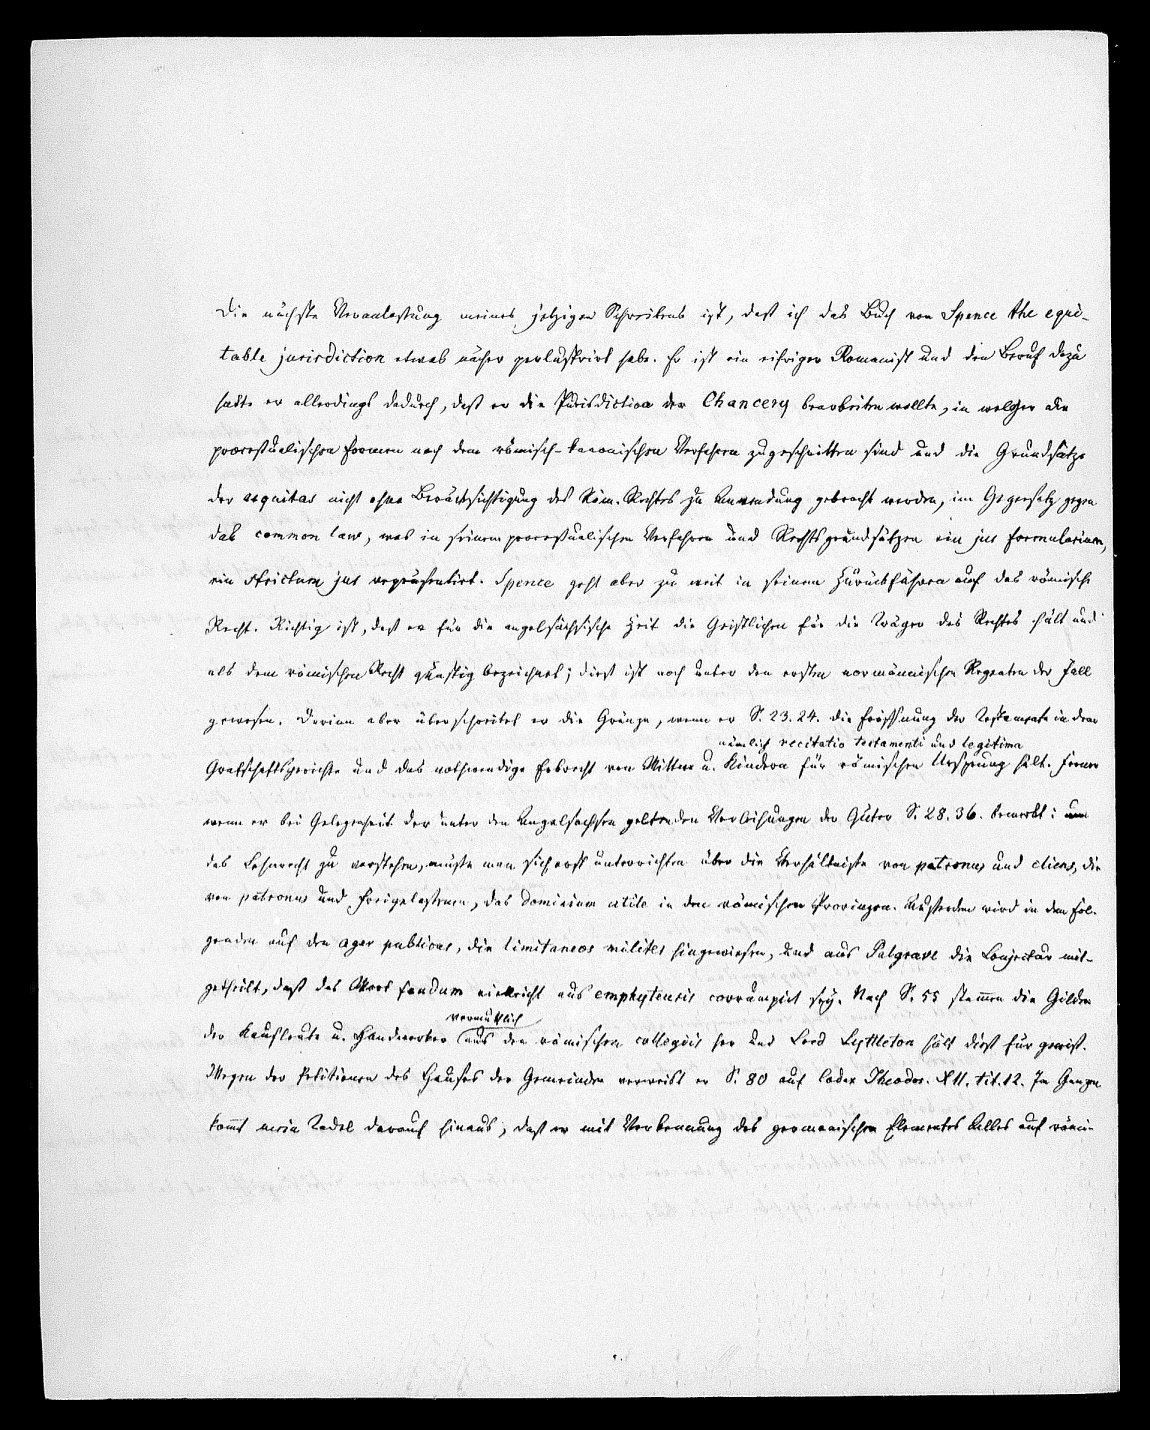 Die nächste Veranlassung meines jetzigen Schreibens ist, daß ich das Buch von Spence the equi-
table jurisdiction etwas näher perlustrirt habe. Er ist ein eifriger Romanist und den Beruf dazu
hatte er allerdings dadurch, daß er die Jurisdiction der Chancery bearbeiten wollte, in welcher die
processualischen Formen nach dem römisch-kanonischen Verfahren zugeschnitten sind und die Grundsätze
der aequitas nicht ohne Berücksichtigung des Röm. Rechtes zu Anwendung gebracht werden, im Gegensatz gegen
das common law, was in seinem processualischen Verfahren und Rechtsgrundsätzen ein jus formularium,
ein strictum jus repräsentirt. Spence geht aber zu weit in seinem Zurückführen auf das römische
Recht. Richtig ist, daß er für die angelsächsische Zeit die Geistlichen für die Träger des Rechtes hält und
als dem römischen Recht günstig bezeichnet; dieß ist noch unter den ersten normännischen Regenten der Fall
gewesen. Darinn aber überschreitet er die Gränze, wenn er S. 23. 24. die Eröffnung der Testamente in den
nämlich recitatio testamenti und legitima
Grafschaftsgerichte und das nothwendige Erbrecht von Wittwe u. Kindern für römischen Ursprung hält. Ferner
wenn er bei Gelegenheit der unter den Angelsachsen geltenden Verleihungen der Güter S. 28. 36. bemerkt: um
das Lehnrecht zu verstehen, müsse man sich erst unterrichten über die Verhältnisse von patronus und cliens, die
von patronus und Freigelassenen, das dominium utile in den römischen Provinzen. Außerdem wird in dem Fol-
genden auf den ager publicus, die limitaneos milites hingewiesen, und aus Palgrave die Conjectur mit-
getheilt, daß das Wort feudum vielleicht aus emphyteusis corrumpirt sey. Nach S. 55 stammen die Gilden
vermuthlich
der Kaufleute u. Handwerker aus den römischen collegiis her und Lord Lyttleton hält dieß für gewiß.
Wegen der Petitionen des Hauses der Gemeinden verweist er S. 80 auf Codex Theodos. XII. tit. 12. Im Ganzen
kommt mein Tadel darauf hinaus, daß er mit Verkennung des germanischen Elementes Alles auf römi-